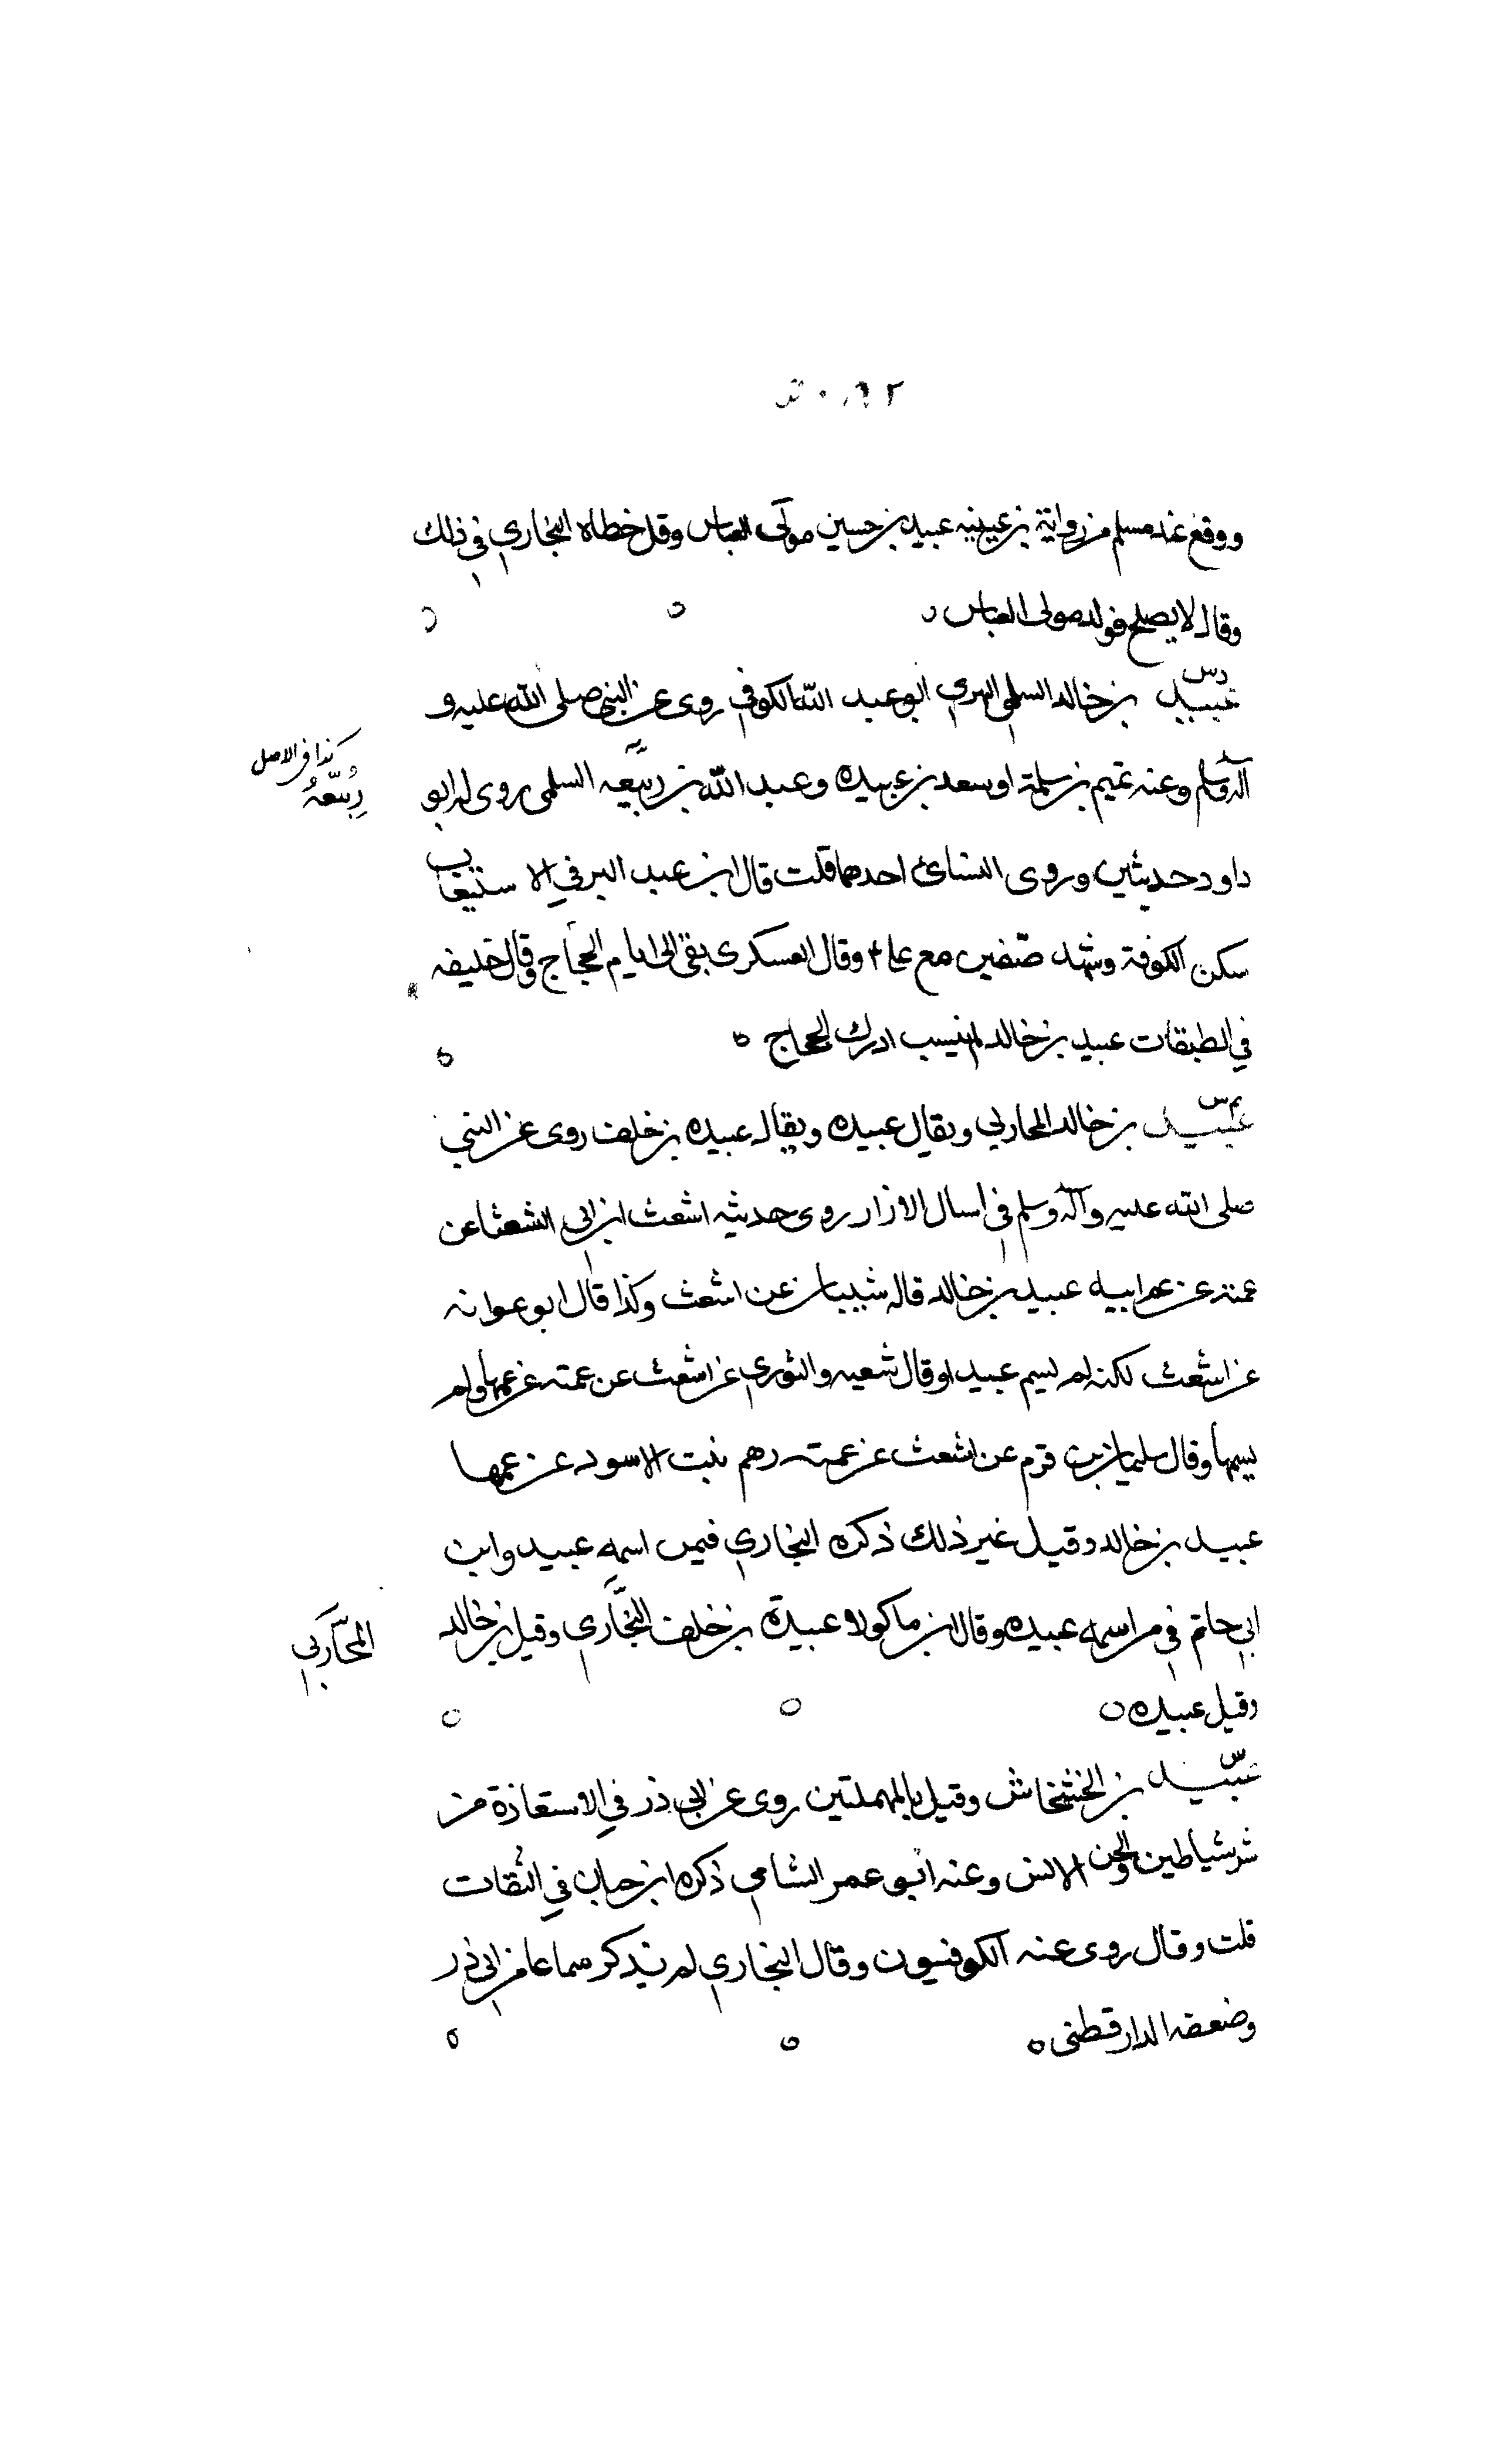 ووقع عند مسلم من رواية بن عيينه عبيد بن حسين مولى العباس وقد خطاه البخاري في ذلك
وقال لا يصلح قوله مولى العباس
دس
عبيد بن خالد السلمي البهري ابو عبد الله الكوفي روى عن النبي صلى الله عليه و
آله وسلم وعنه تميم بن سلمة او سعد بن عبيده وعبد الله بن ربيعه السلمى روى له ابو
كذا في الاصل
ربيعة
داود حديثين وروى النسائ احدهما قلت قال ابن عبد البر في الاستيعاب
سكن الكوفة وشهد صفين مع على وقال العسكرى بقى الى ايام الحجاج وقال خليفه
في الطبقات عبيد بن خالد لم ينسب ادرك الحجاج
عبيد بن خالد المحاربي ويقال عبيده ويقال عبيده بن خلف روى عن النبي
صلى الله عليه وآله وسلم في اسبال الازار روى حديثه اشعث ابن ابي الشعثا عن
عمته عن عم ابيه عبيد بن خالد قاله شيبان عن اشعث وكذا قال ابو عوانه
عن اشعث لكنه لم يسم عبيدا وقال شعبه والثوري عن اشعث عن عمته عن عمها ولم
يسمها وقال سليمان بن قرم عن اشعث عن عمته رهم بنت الاسود عن عمها
عبيد بن خالد وقيل غير ذلك ذكره البخاري فيمن اسمه عبيد وابن
ابي حاتم في من اسمه عبيده وقال ابن ماكولا عبيدة بن خلف البخاري وقيل بن خالد
المحاربي
وقيل عبيده
س
عبيد بن الخشخاش وقيل بالمهملتين روى عن ابي ذر في الاستعاذة من
شر شياطين الجن والانس وعنه ابو عمر الشامي ذكره ابن حبان في الثقات
قلت وقال روى عنه الكوفيون وقال البخاري لم يذكر سماعا من ابى ذر
وضعفه الدارقطنى